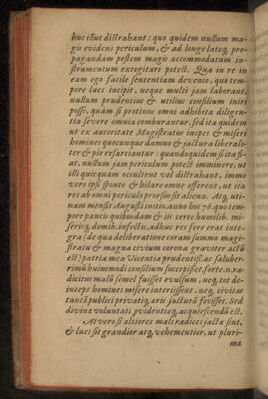 huc illuc distrahant: quo quidem nullum ma-
gis evidens periculum, & ad longe lateq; pro-
pagandam pestem magis accommodatum in-
strumentum excogitare potest. Qua in re in
eam ego facile sententiam devenio, quo tem-
pore lues incipit, neque multi jam laborant,
nullum prudentius & utilius consilium iniri
posse, quàm si protinus omni adhibita diligen-
tia severe omnia comburantur, sed ita quidem
ut ex autoritate Magistratus inopes & miseri
homines quotcunque damno & jactura liberali-
ter & pie resarciantur: quandoquidem si ita fi-
at, nullum jam periculum potest imminere, ut
illi quicquam occultent vel distrahant, immo
vero ipsi sponte & hilare omne offerent, ut ita
res ab omni periculo prorsum sit aliena. Atq; uti-
nam mensis Augusti initio, anno hoc 76. quo tem-
pore paucis quibusdam & iis certe humilib. mi-
seriq; domib. infectis, adhuc res fere erat inte-
gra (de qua deliberatione coram summo magi-
stratu & magna civium corona graviter actū
est) patria mea Vicentia prudentiss. ac saluber-
rimū hujusmodi consilium suscepisset, forte. n. ra-
dicitus malū semel fuisset evulsum, neq; tot de-
inceps homines misere interiissent, neq; civitas
tantā publicè privatiq; aris jacturā fecisset. Sed
divina voluntati pudentisq; acquiescendū est.
At vero si altiores mali radices jacta sint,
& lues sit grandior atq; vehementior, ut pluri-
ma